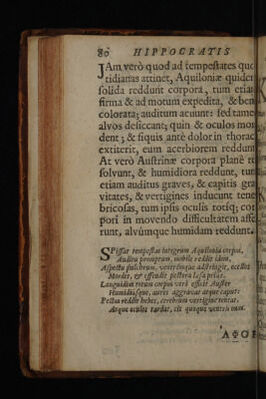 80 HIPPOCRATIS
IAm verò quod ad tempestates quo
tidianas attinet, Aquiloniæ quidem
solida reddunt corpora, tum etiam
firma & ad motum expedita, & bene
colorata; auditum acuunt: sed tamen
alvos desiccant; quin & oculos mor
dent; & siquis antè dolor in thorace
extiterit, eum acerbiorem reddunt
At verò Austrinæ corpora planè re
solvunt, & humidiora reddunt, tum
etiam auditus graves, & capitis gra
vitates, & vertigines inducunt tene
bricosas, tum ipsis oculis totiq; cor
pori in movendo difficultatem affe
runt, alvúmque humidam reddunt.
SPissat tempestas integrum Aquilonia corpus,
Auditu promptum, mobile reddit idem,
Aspectu pulchrum, ventrémque adstringit, ocellos
Mordet, & offendit pectora læsa prius.
Languidum totum corpus verò efficit Auster
Humidiúsque, aures aggravat atque caput:
Pectus reddit hebes, cerebrum vertigine tentat,
Atque oculos tardat, cit quoque ventris onus.
ΑΦΟΡ